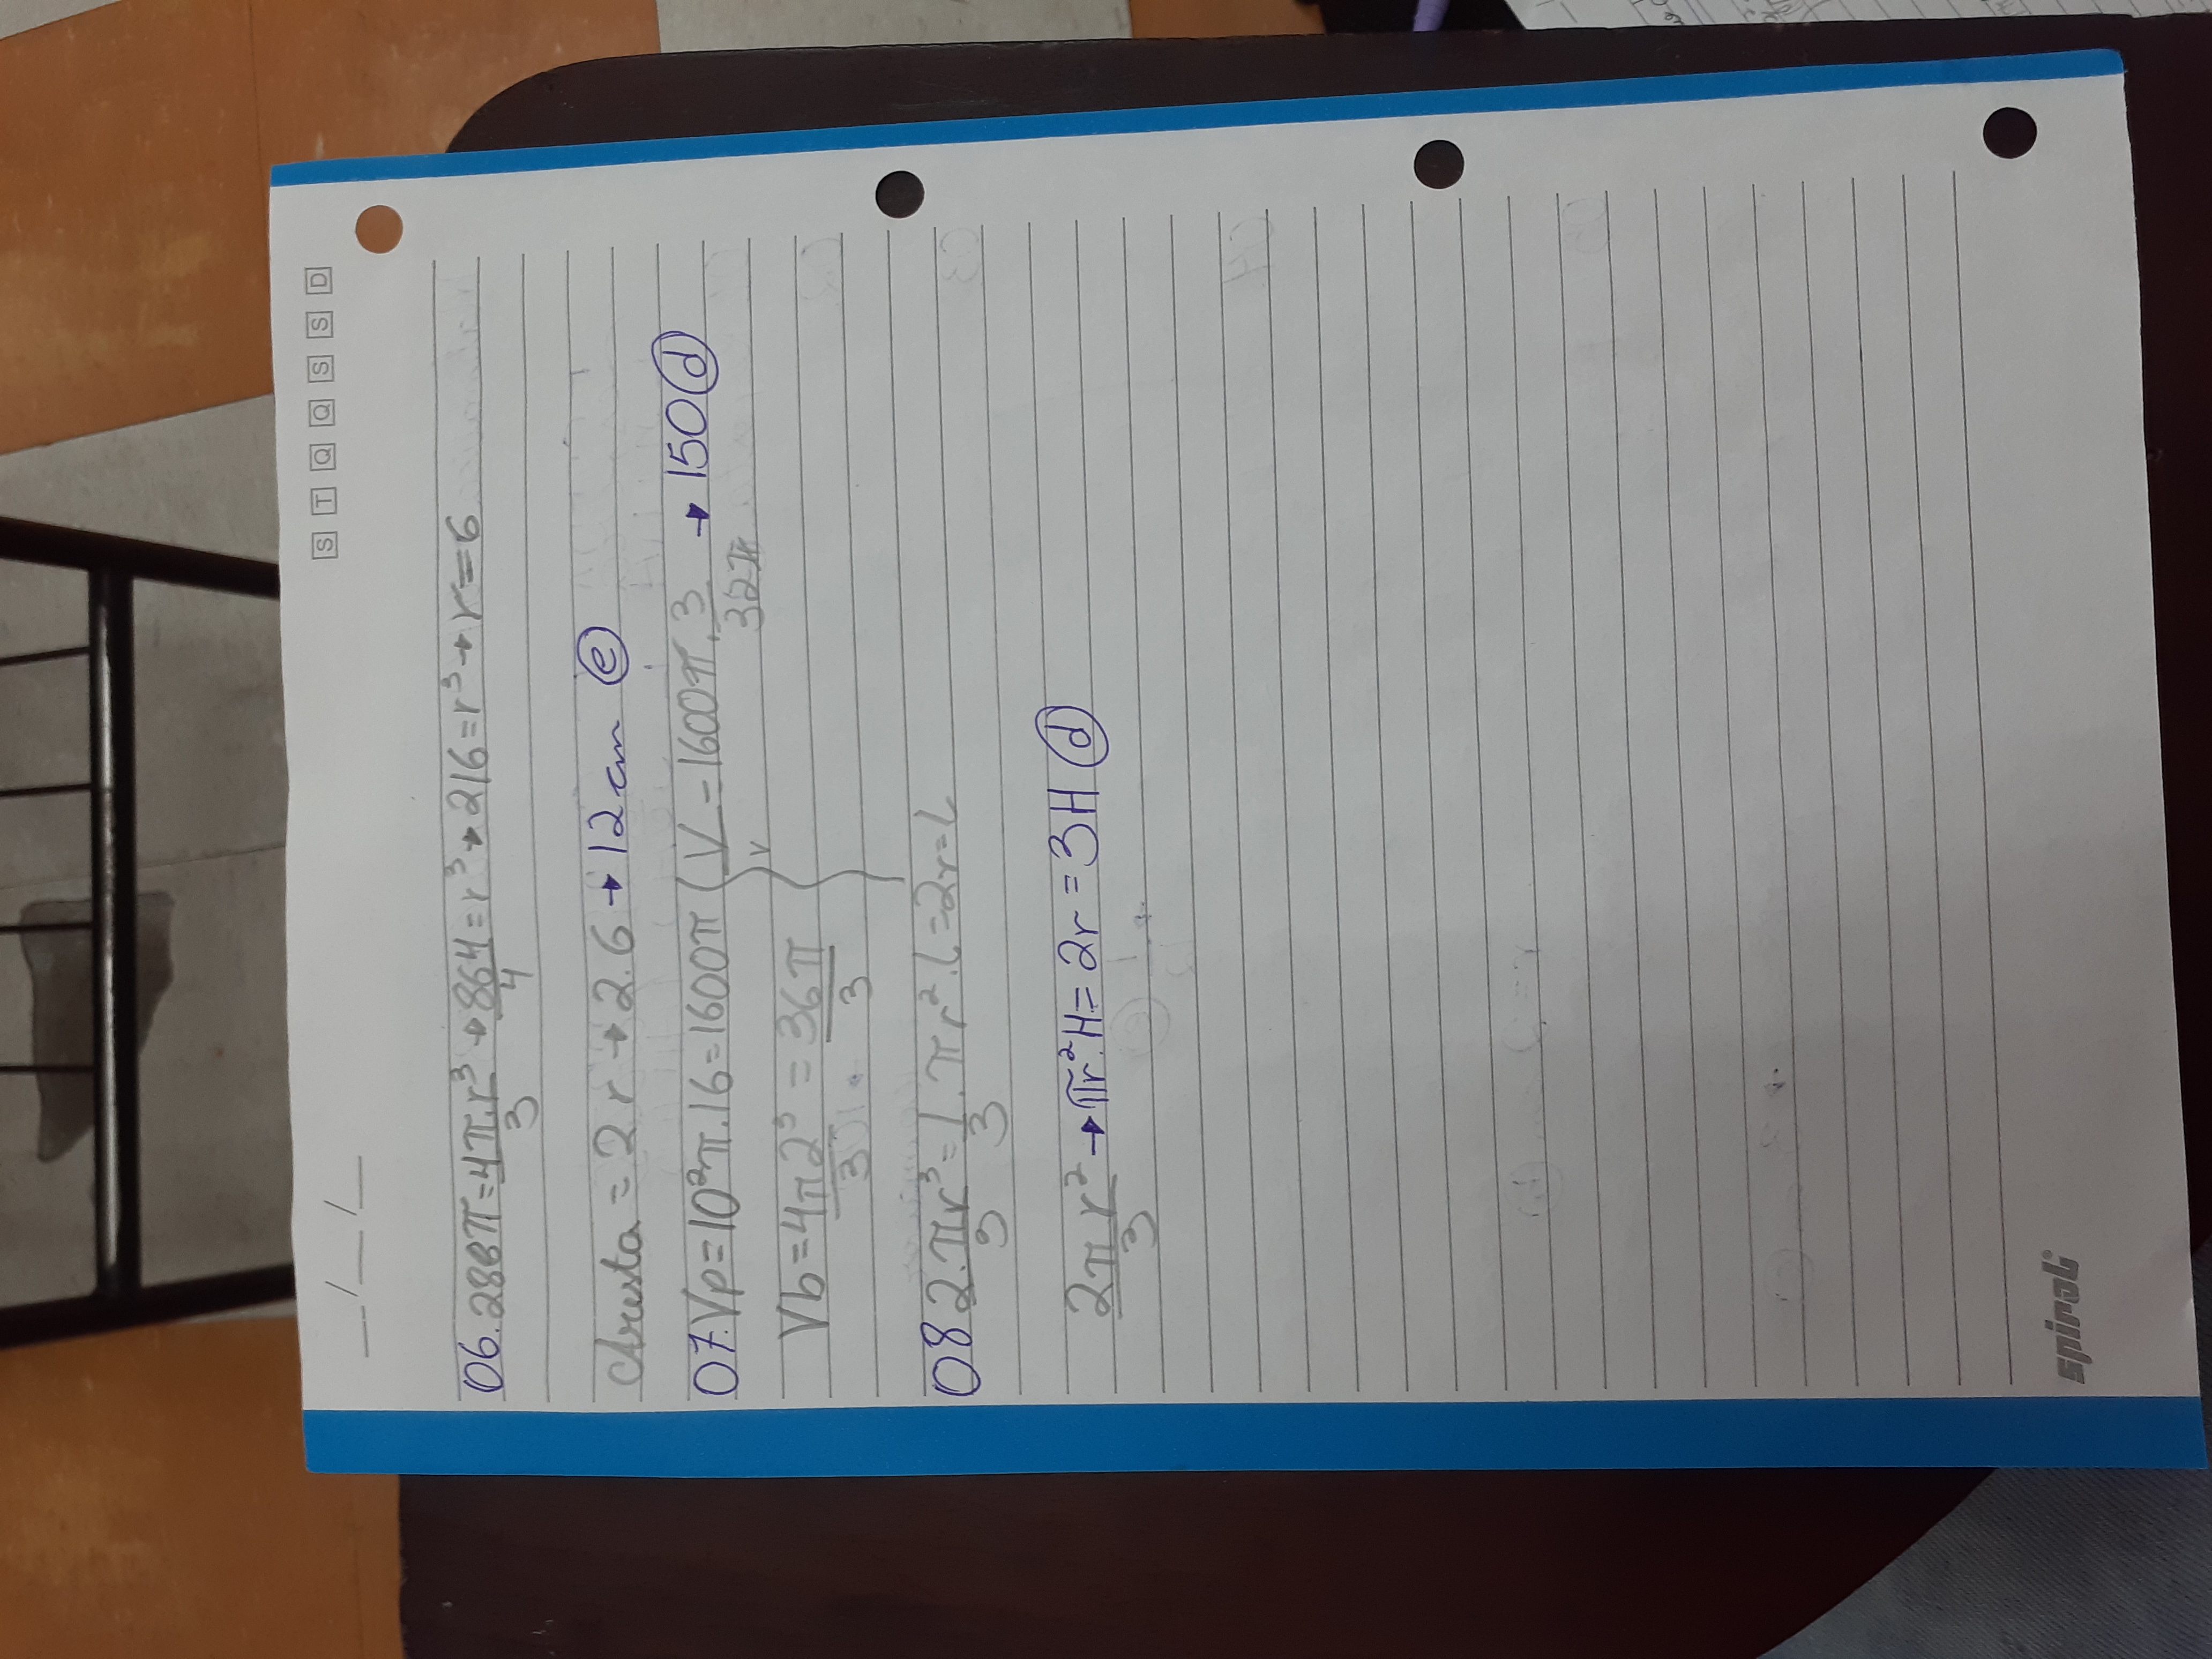 __/__/__
S T Q Q S S D
06. 288π = 4π.r³/3 → 864/4 = r³ → 216 = r³ → r = 6
Aresta = 2r → 2.6 → 12 cm (e)
07. Vp = 10²π.16 = 1600π V/v = 1600π.3/32π → 150 (d)
Vb = 4π2³/3 = 36π/3
08 2.πr³/3 = 1/3.πr².L = 2r = L
2πr²/3 → πr².H = 2r = 3H (d)
spiral